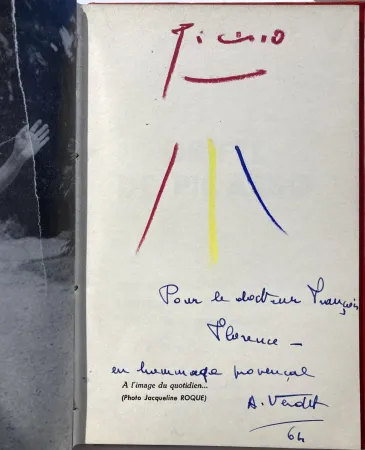 Picasso
Pour le docteur François
Florence —
en hommage provençal
A l'image du quotidien...
(Photo Jacqueline ROQUE)
A. Verdet
64